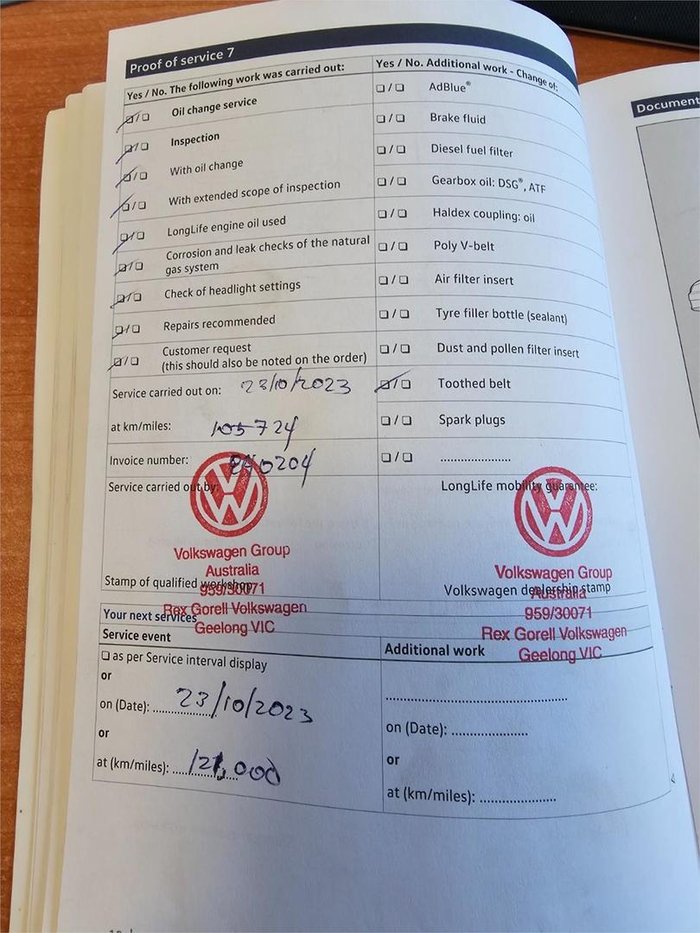 Proof of service 7
Document
Yes / No. The following work was carried out:
☐/☐ Oil change service
☐/☐ Inspection
☐/☐ With oil change
☐/☐ With extended scope of inspection
☐/☐ LongLife engine oil used
☐/☐ Corrosion and leak checks of the natural
gas system
☐/☐ Check of headlight settings
☐/☐ Repairs recommended
☐/☐ Customer request
(this should also be noted on the order)
Service carried out on: 23/10/2023
at km/miles: 105724
Invoice number:
Service carried out by:
Stamp of qualified workshop
Yes / No. Additional work - Change of:
☐/☐ AdBlue®
☐/☐ Brake fluid
☐/☐ Diesel fuel filter
☐/☐ Gearbox oil: DSG®, ATF
☐/☐ Haldex coupling: oil
☐/☐ Poly V-belt
☐/☐ Air filter insert
☐/☐ Tyre filler bottle (sealant)
☐/☐ Dust and pollen filter insert
☐/☐ Toothed belt
☐/☐ Spark plugs
☐/☐ ....................
LongLife mobility guarantee:
Volkswagen dealership stamp
Volkswagen Group
Australia
959/30071
Rex Gorell Volkswagen
Geelong VIC
Volkswagen Group
Australia
959/30071
Rex Gorell Volkswagen
Geelong VIC
Your next services
Service event
☐ as per Service interval display
or
on (Date): 23/10/2023
or
at (km/miles): 121,000
Additional work
on (Date): ....................
or
at (km/miles): ....................